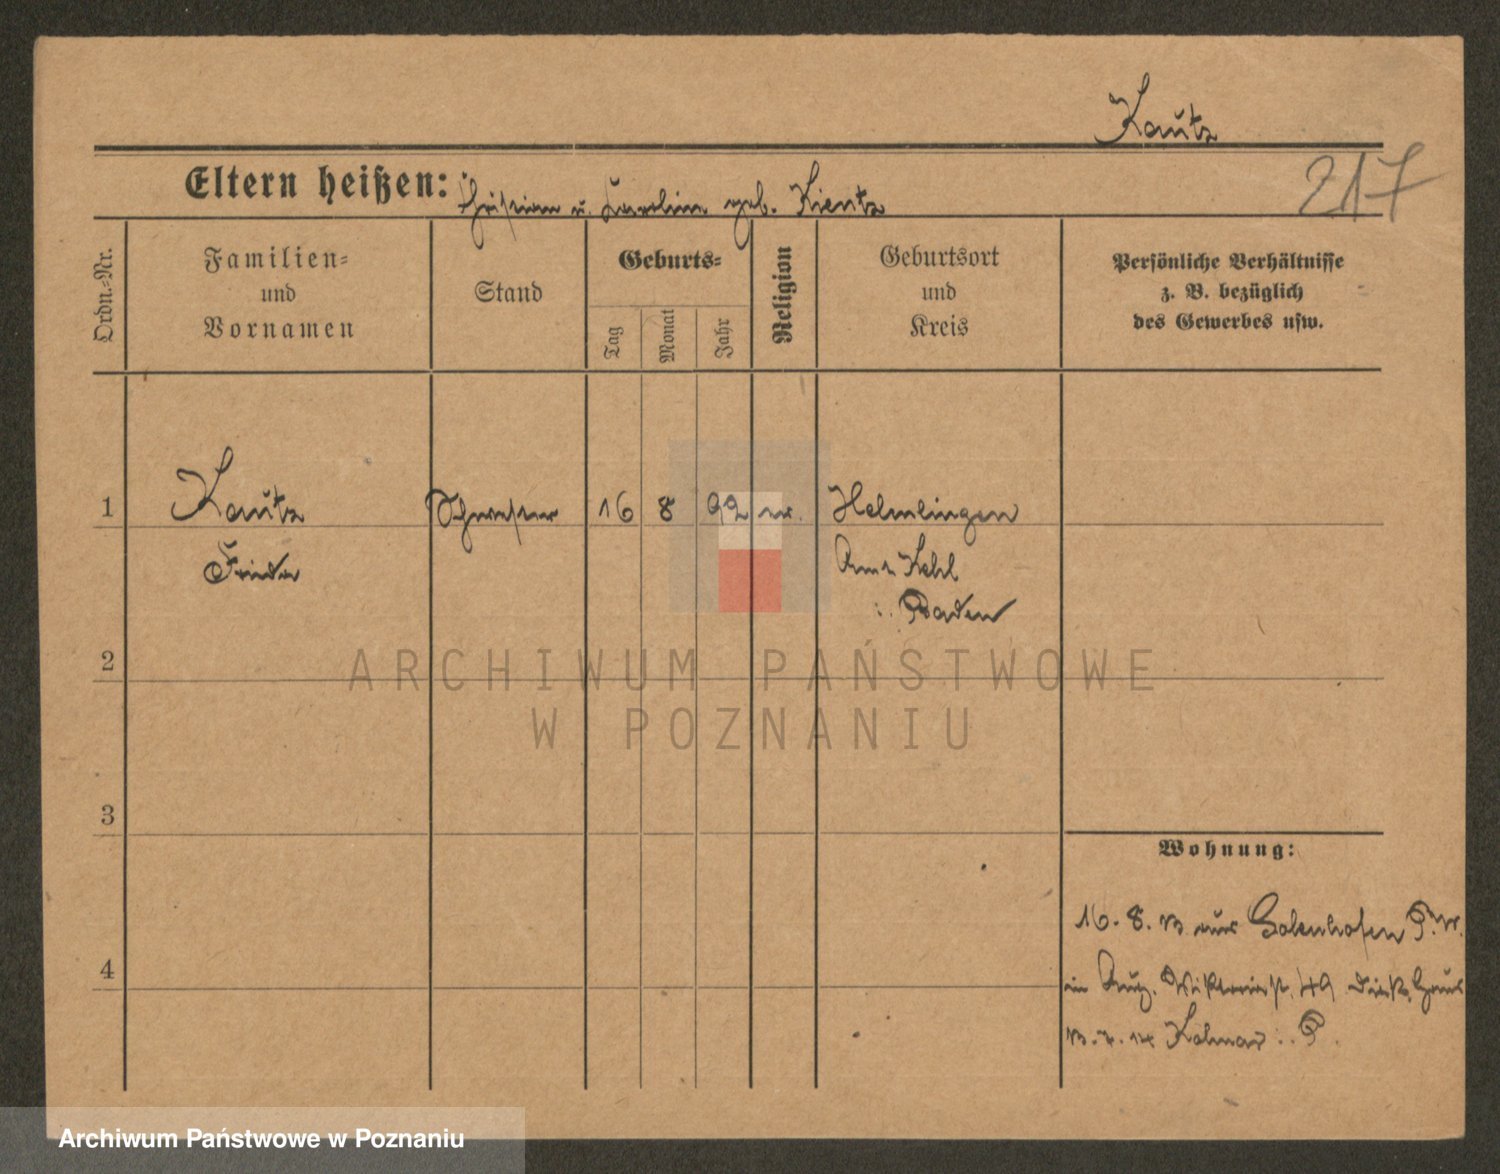 Kautz
217
Eltern heißen: Christian u. Karolina geb. Kientz
Ordn.-Nr.
Familien-
und
Vornamen
Stand
Geburts-
Tag
Monat
Jahr
Religion
Geburtsort
und
Kreis
Persönliche Verhältnisse
z. B. bezüglich
des Gewerbes usw.
1 Kautz Schwester 16 8 92 ev. Helmlingen
Frieda Amt Kehl
i. Baden
2
ARCHIWUM PAŃSTWOWE
W POZNANIU
3
Wohnung:
16. 8. 13 aus Golenhofen P. W.
4
in Aug. Viktoriast. 49 Diak. Haus
Kolmar i. P.
Archiwum Państwowe w Poznaniu